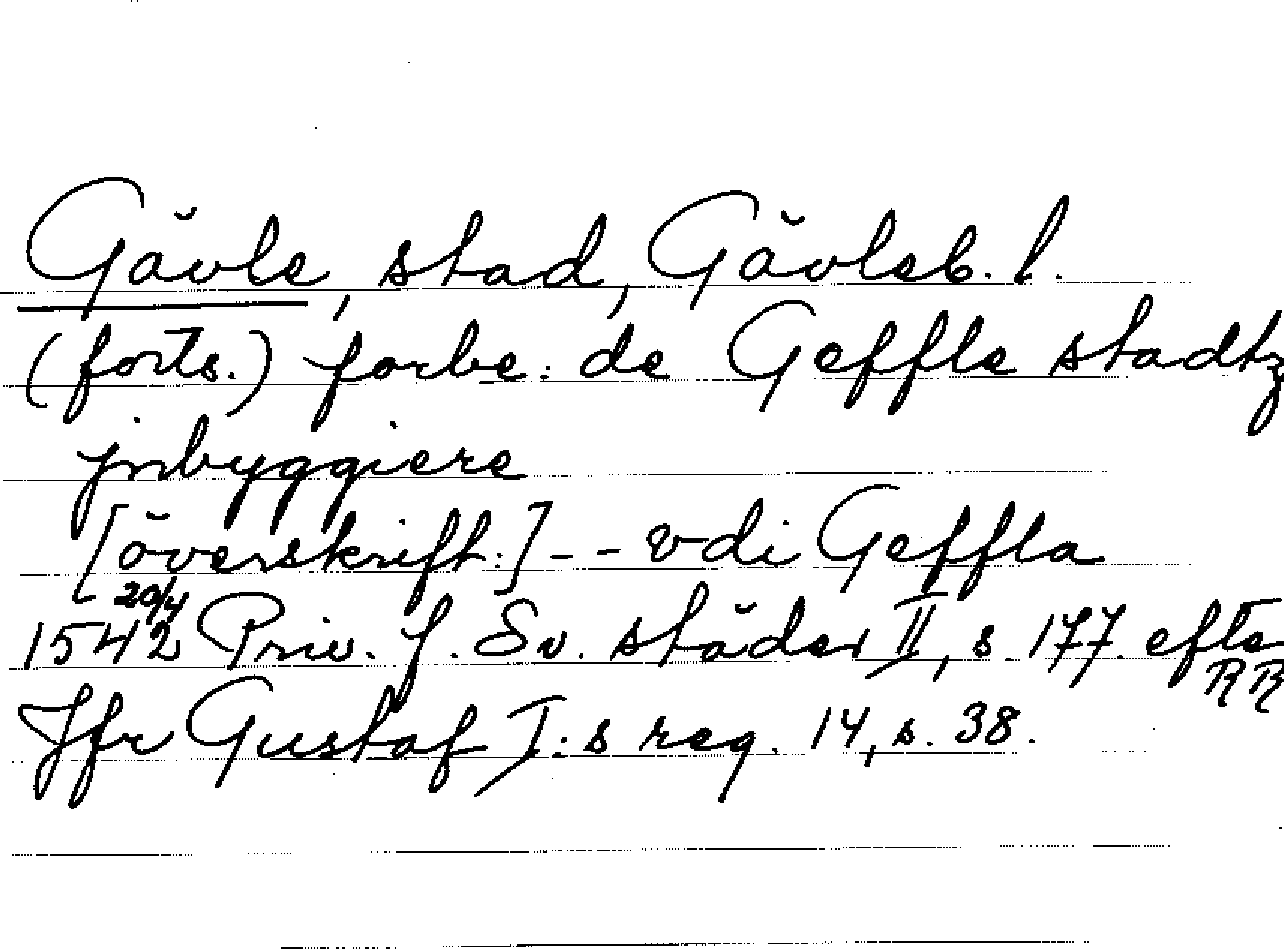 Gävle, stad, Gävleb. l.
(forts.) forbe: de Geffle stadtz
jnbyggiere
[överskrift:] - - vdi Geffla
20/4
1542 Priv. f. Sv. städer II, s. 177. efter
RR
Jfr Gustaf I:s reg. 14, s. 38.